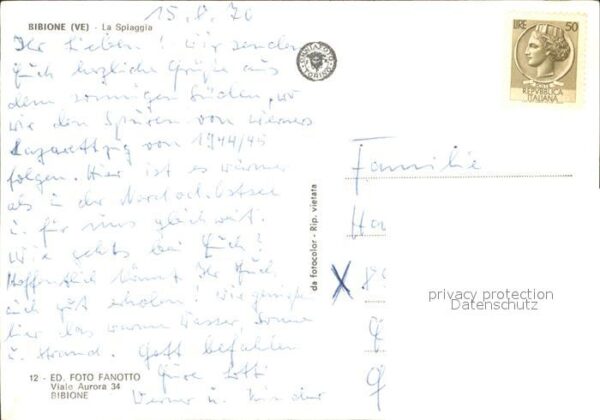 15.8.70
BIBIONE (VE) - La Spiaggia
Ihr Lieben! Wir senden
Euch herzliche Grüße aus
dem sonnigen Süden, wo
wir den Spuren von Werners
Lazarettzug von 1944/45
folgen. Hier ist es wärmer
als in der Nord od. Ostsee
u. für uns gleich weit.
Wie gehts bei Euch?
Hoffentlich könnt Ihr Euch
auch gut erholen! Wir genießen
hier das warme Wasser, Sonne
u. Strand. Gott befohlen
Eure Lotti
Werner u. Kinder
12 - ED. FOTO FANOTTO
Viale Aurora 34
BIBIONE
da fotocolor - Rip. vietata
LIRE 50
REPVBBLICA
ITALIANA
Familie
Ha
privacy protection
Datenschutz